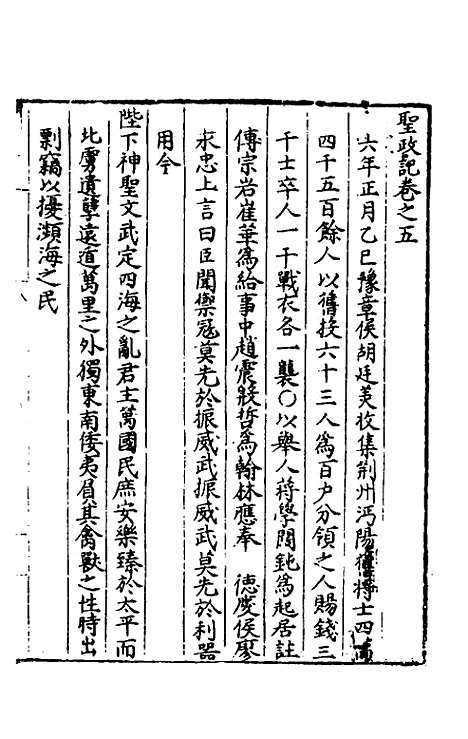 聖政記卷之五
六年正月乙巳豫章侯胡廷美收集荆州沔陽舊將士四萬
四千五百餘人以舊校六十三人為百户分領之人賜錢三
千士卒人一千戰衣各一襲〇以舉人蔣學閻鈍為起居註
傅宗岩崔華為給事中趙震殷哲為翰林應奉　德慶侯廖
永忠上言曰臣聞禦寇莫先於振威武振威武莫先於利器
用今
陛下神聖文武定四海之亂君主萬國民庶安樂臻於太平而
北虜遺孽遠遁萬里之外獨東南倭夷眉其禽獸之性時出
剽竊以擾瀕海之民